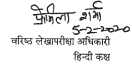 प्रेमिला शर्मा
5-2-2020
वरिष्ठ लेखापरीक्षा अधिकारी
हिन्दी कक्ष